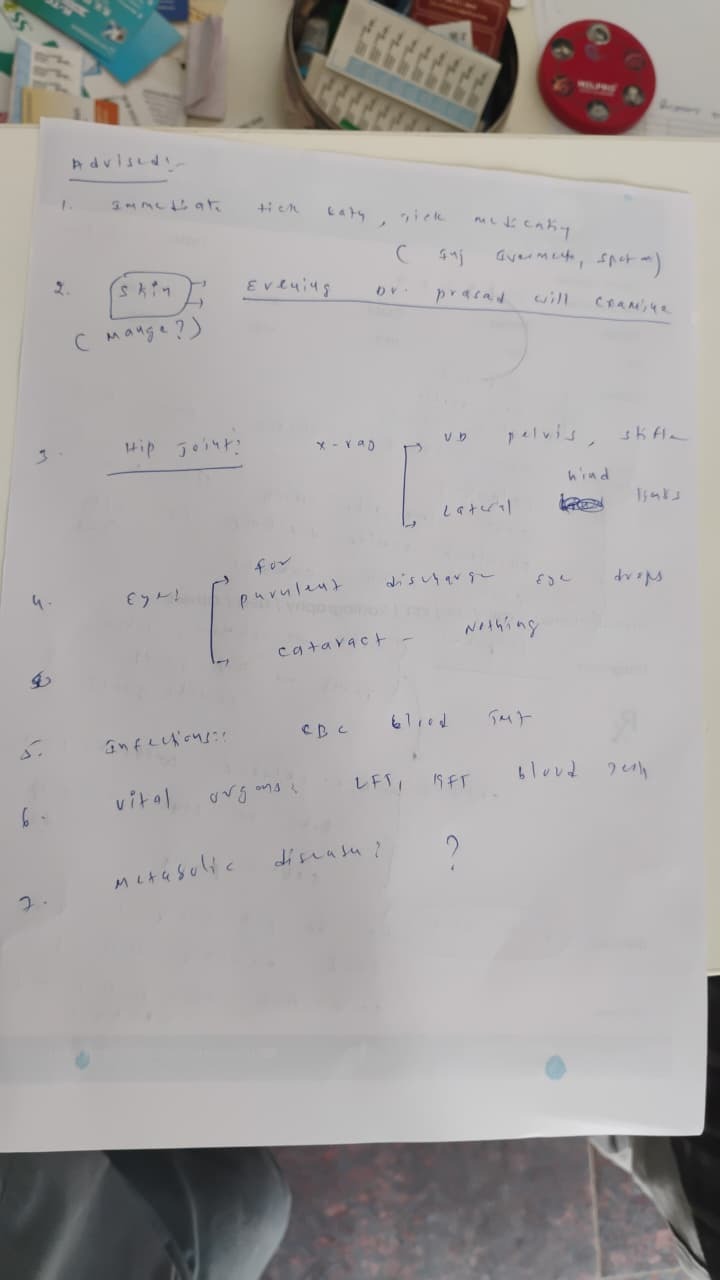 Advised:-
1. Immediate tick bath, tick medicating
( Inj Ivermectin, spot on)
2. Skin Evening Dr. prasad will examine
( Mange?)
3. Hip Joint: x-ray VD pelvis, stifle
Lateral hind limbs
4. Eye: for purulent discharge eye drops
cataract - Nothing
5. Infections:: CBC blood Test
6. vital organs: LFT, KFT blood tests
7. Metabolic disease: ?